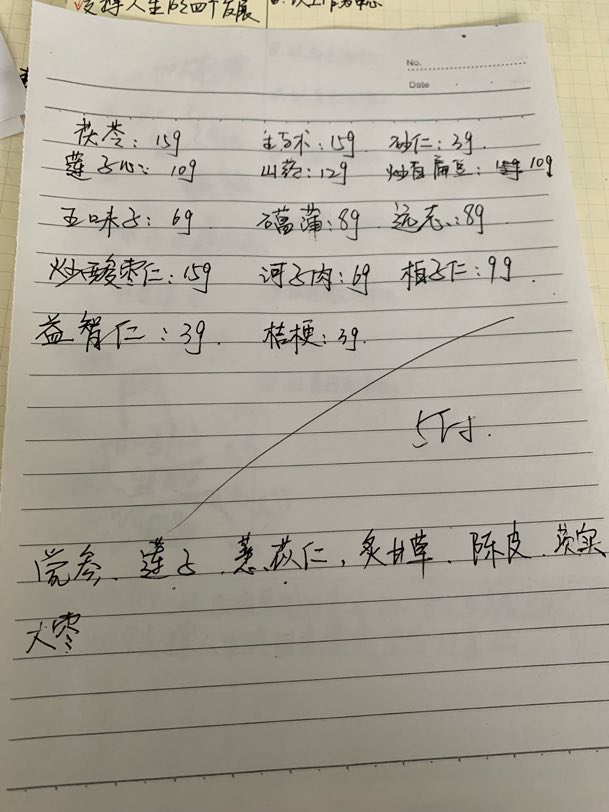 支持人生的四个发展
No.
Date
茯苓：15g 生白术：15g 砂仁：3g.
莲子心：10g 山药：12g 炒白扁豆：15g 10g
五味子：6g 石菖蒲：8g 远志：8g
炒酸枣仁：15g 诃子肉：6g 柏子仁：9g.
益智仁：3g. 桔梗：3g.
5付.
党参、莲子、薏苡仁、炙甘草、陈皮、芡实
大枣